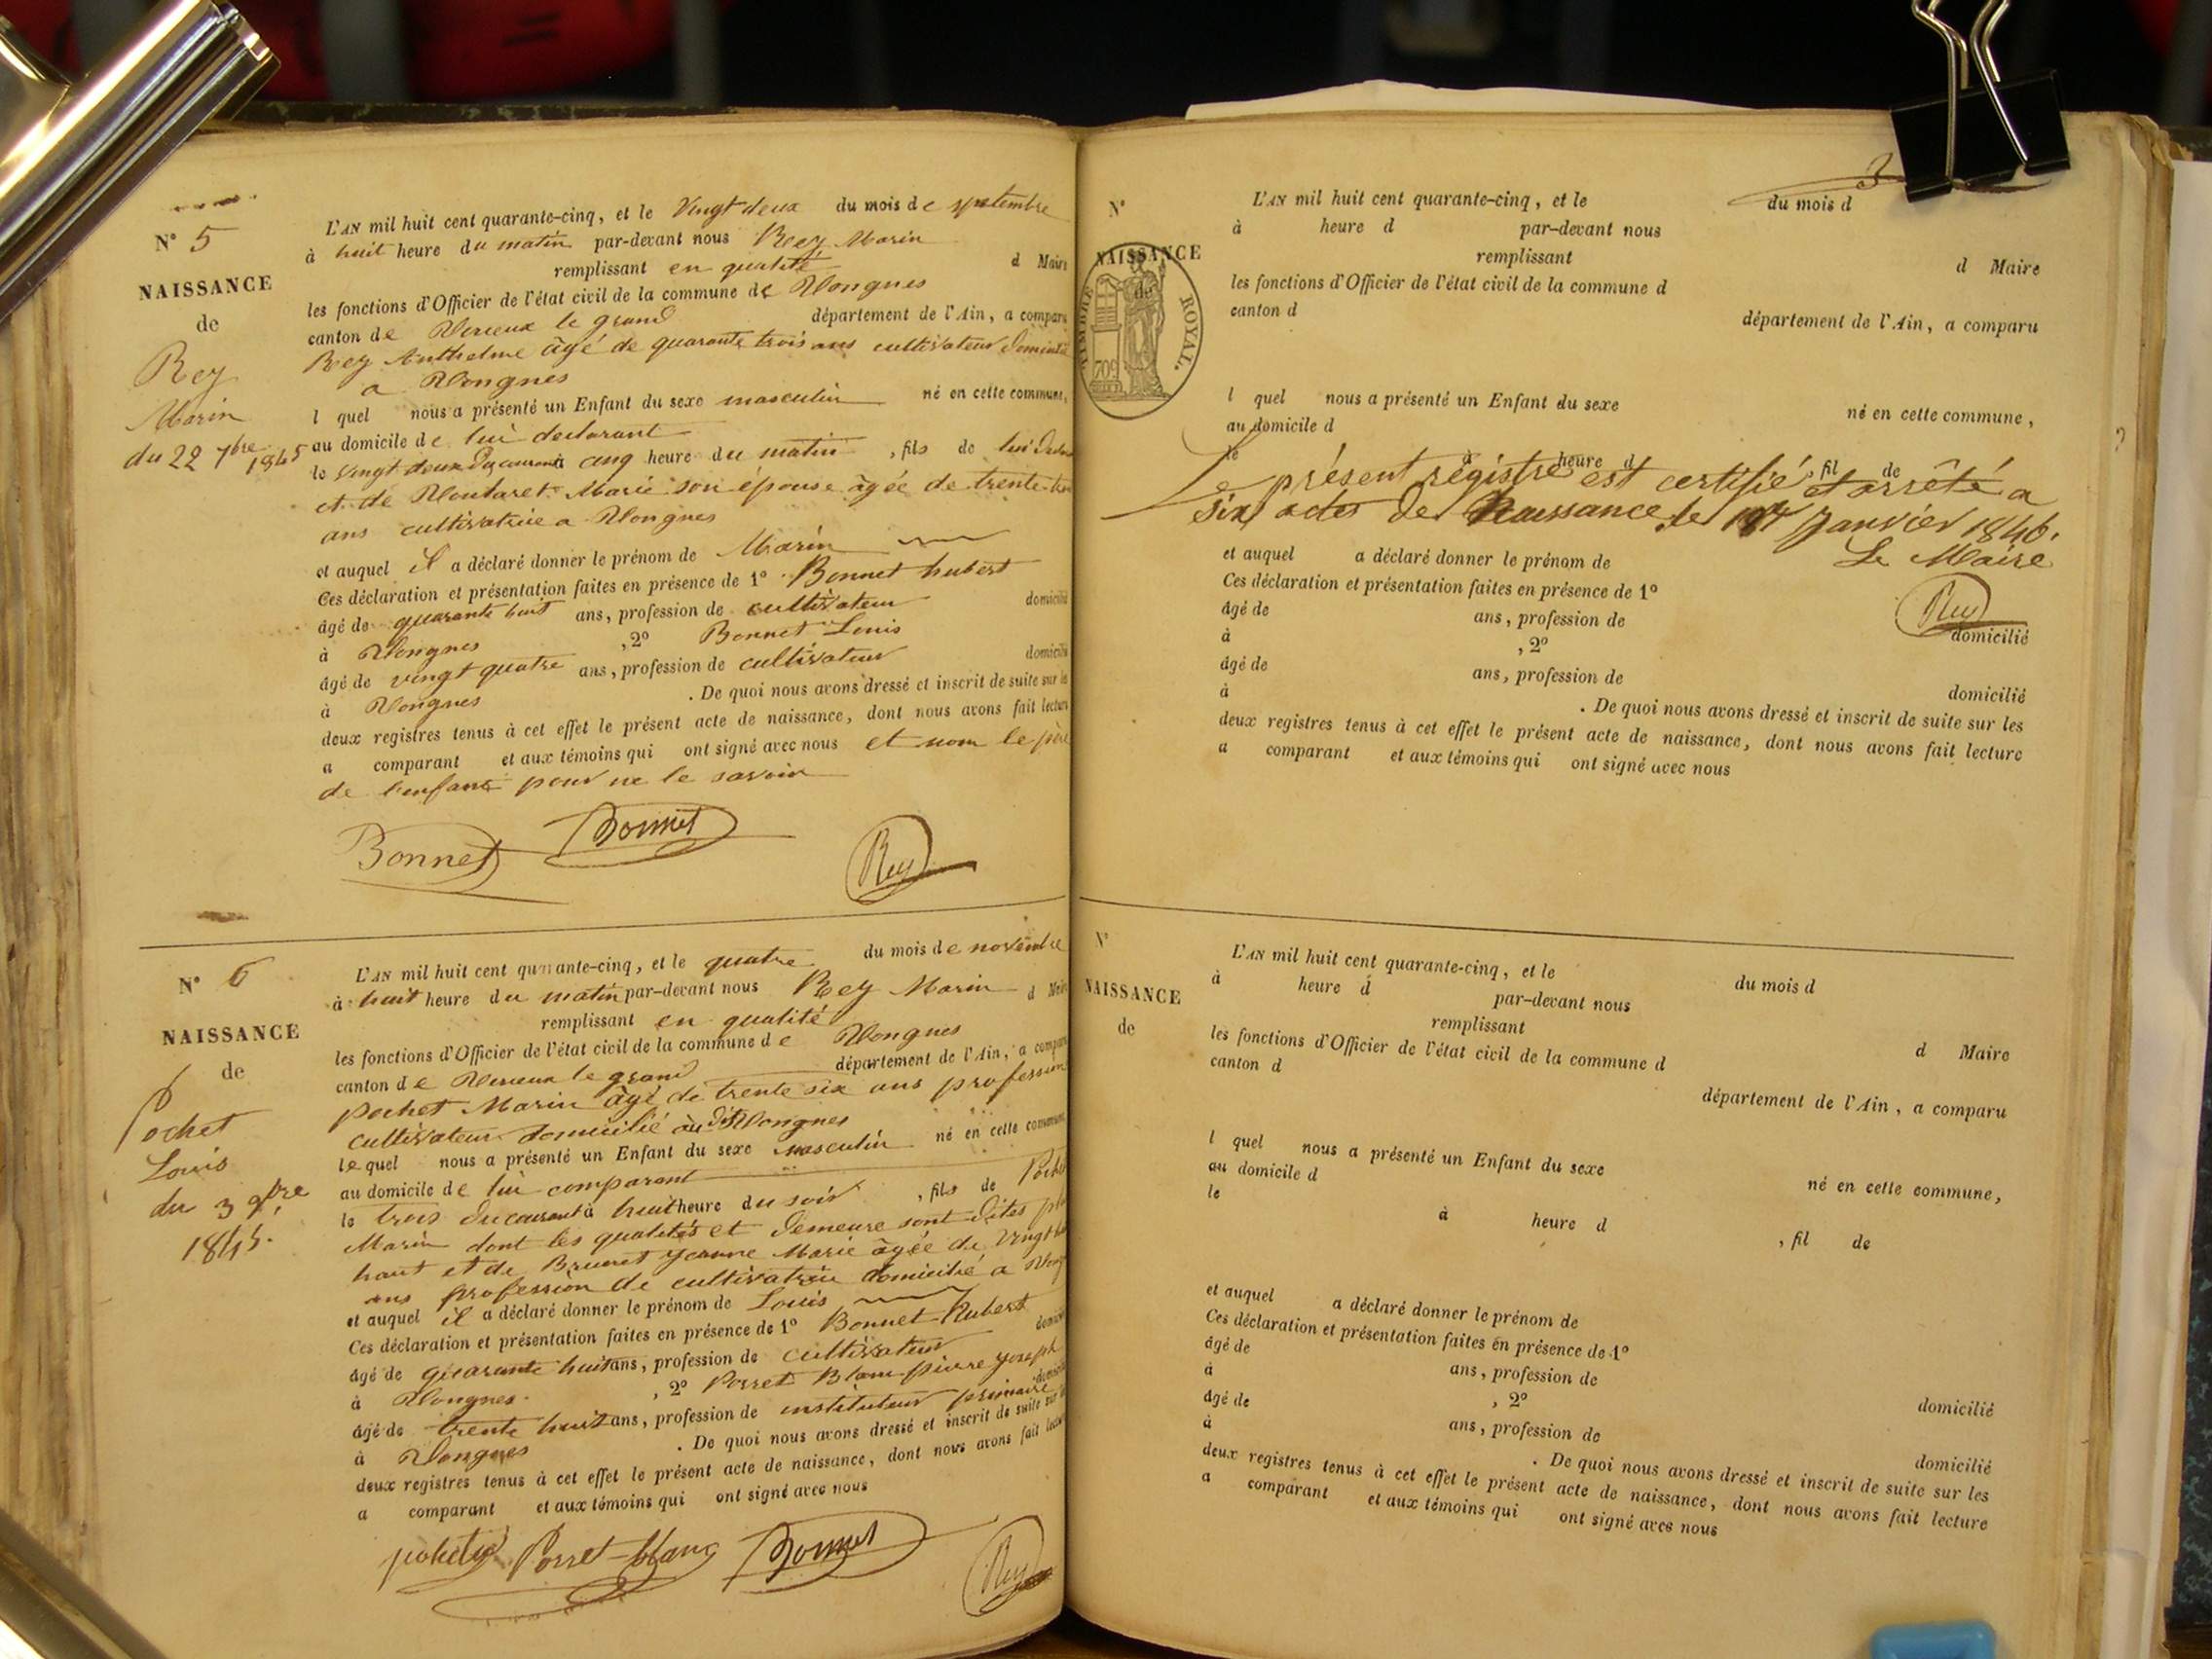 N° 5
NAISSANCE
de
Rey
Marin
du 22 7bre 1845
L'AN mil huit cent quarante-cinq, et le Vingt deux du mois de septembre
à huit heure du matin par-devant nous Rey Marin
remplissant en qualité d Maire
les fonctions d'Officier de l'état civil de la commune de Vongnes
canton de Virieux le grand département de l'Ain, a comparu
Rey Anthelme âgé de quarante trois ans cultivateur domicilié
a Vongnes
l quel nous a présenté un Enfant du sexe masculin né en cette commune,
au domicile de lui declarant
le vingt deux du courant à cinq heure du matin, fils de lui
et de Marie son épouse âgée de trente
ans cultivatrice a Vongnes
et auquel il a déclaré donner le prénom de Marin
Ces déclaration et présentation faites en présence de 1° Bonnet hubert
âgé de quarante huit ans, profession de cultivateur domicilié
à Vongnes, 2° Bonnet Louis
âgé de vingt quatre ans, profession de cultivateur domicilié
à Vongnes. De quoi nous avons dressé et inscrit de suite sur les
deux registres tenus à cet effet le présent acte de naissance, dont nous avons fait lecture
a comparant et aux témoins qui ont signé avec nous et nom le père
de l'enfant pour ne le savoir
Bonnet Bonnet Rey
N° 6
NAISSANCE
de
Pochet
Louis
du 3 9bre
1845.
L'AN mil huit cent quarante-cinq, et le quatre du mois de novembre
à huit heure du matin par-devant nous Rey Marin d Maire
remplissant en qualité
les fonctions d'Officier de l'état civil de la commune de Vongnes
canton de Virieux le grand département de l'Ain, a comparu
pochet Marin âgé de trente six ans profession
cultivateur domicilié au dit Vongnes
lequel nous a présenté un Enfant du sexe masculin né en cette commune
au domicile de lui comparant
le trois du courant à huit heure du soir, fils de Pochet
Marin dont les qualités et demeure sont dites plus
haut et de Brunet Jeanne Marie âgée de Vingt
ans profession de cultivatrice domicilié a
et auquel il a déclaré donner le prénom de Louis
Ces déclaration et présentation faites en présence de 1° Bonnet Hubert
âgé de quarante huit ans, profession de cultivateur domicilié
à Vongnes, 2° Porret Blanc pierre Joseph
âgé de trente huit ans, profession de instituteur primaire domicilié
à Vongnes. De quoi nous avons dressé et inscrit de suite sur les
deux registres tenus à cet effet le présent acte de naissance, dont nous avons fait lecture
a comparant et aux témoins qui ont signé avec nous
Porret-blanc Bonnet Rey
3
N°
NAISSANCE
de
TIMBRE ROYAL.
709
L'AN mil huit cent quarante-cinq, et le du mois d
à heure d par-devant nous
remplissant d Maire
les fonctions d'Officier de l'état civil de la commune d
canton d département de l'Ain, a comparu
l quel nous a présenté un Enfant du sexe né en cette commune,
au domicile d
le à heure d , fil de
Le présent régistre est certifié et arrêté a
six actes de Naissance le Janvier 1846.
Le Maire
Rey
et auquel a déclaré donner le prénom de
Ces déclaration et présentation faites en présence de 1°
âgé de ans, profession de domicilié
à , 2°
âgé de ans, profession de domicilié
à . De quoi nous avons dressé et inscrit de suite sur les
deux registres tenus à cet effet le présent acte de naissance, dont nous avons fait lecture
a comparant et aux témoins qui ont signé avec nous
N°
NAISSANCE
de
L'AN mil huit cent quarante-cinq, et le du mois d
à heure d par-devant nous
remplissant d Maire
les fonctions d'Officier de l'état civil de la commune d
canton d département de l'Ain, a comparu
l quel nous a présenté un Enfant du sexe né en cette commune,
au domicile d
le à heure d , fil de
et auquel a déclaré donner le prénom de
Ces déclaration et présentation faites en présence de 1°
âgé de ans, profession de domicilié
à , 2°
âgé de ans, profession de domicilié
à . De quoi nous avons dressé et inscrit de suite sur les
deux registres tenus à cet effet le présent acte de naissance, dont nous avons fait lecture
a comparant et aux témoins qui ont signé avec nous